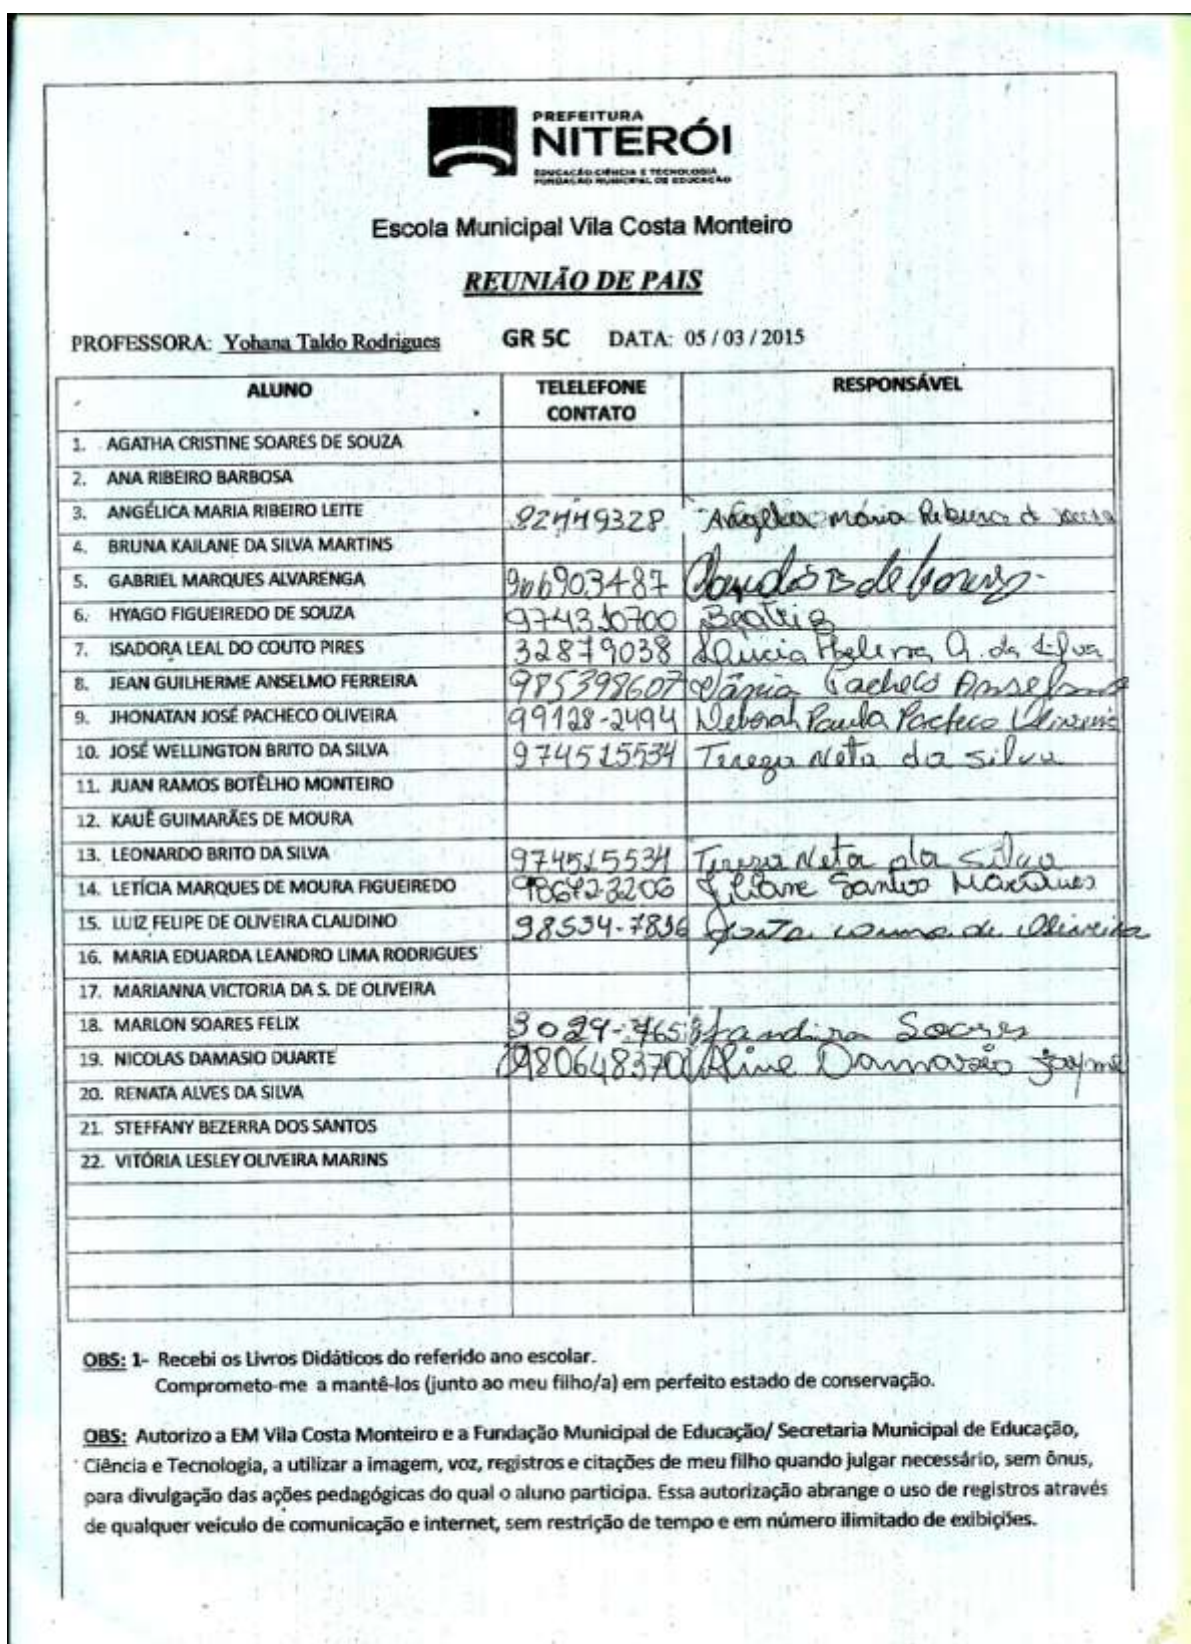 PREFEITURA
NITERÓI
EDUCAÇÃO CIÊNCIA E TECNOLOGIA
FUNDAÇÃO MUNICIPAL DE EDUCAÇÃO
Escola Municipal Vila Costa Monteiro
REUNIÃO DE PAIS
PROFESSORA: Yohana Taldo Rodrigues GR 5C DATA: 05 / 03 / 2015
ALUNO TELELEFONE CONTATO RESPONSÁVEL
1. AGATHA CRISTINE SOARES DE SOUZA
2. ANA RIBEIRO BARBOSA
3. ANGÉLICA MARIA RIBEIRO LEITE 82449328 Maria Ribeiro
4. BRUNA KAILANE DA SILVA MARTINS
5. GABRIEL MARQUES ALVARENGA 966903487
6. HYAGO FIGUEIREDO DE SOUZA 974310700 Beatriz
7. ISADORA LEAL DO COUTO PIRES 32879038 Helena da Silva
8. JEAN GUILHERME ANSELMO FERREIRA 985398607 Vânia Pacheco Anselmo
9. JHONATAN JOSÉ PACHECO OLIVEIRA 99128-2494 Deborah Paula Pacheco Oliveira
10. JOSÉ WELLINGTON BRITO DA SILVA 974515534 Tereza Neta da Silva
11. JUAN RAMOS BOTÊLHO MONTEIRO
12. KAUÊ GUIMARÃES DE MOURA
13. LEONARDO BRITO DA SILVA 974515534 Tereza Neta da Silva
14. LETÍCIA MARQUES DE MOURA FIGUEIREDO 986723206 Liliane Santos Marques
15. LUIZ FELIPE DE OLIVEIRA CLAUDINO 98534-7836 de Oliveira
16. MARIA EDUARDA LEANDRO LIMA RODRIGUES
17. MARIANNA VICTORIA DA S. DE OLIVEIRA
18. MARLON SOARES FELIX Jandira Soares
19. NICOLAS DAMASIO DUARTE 980648370 Aline Damasio Jayme
20. RENATA ALVES DA SILVA
21. STEFFANY BEZERRA DOS SANTOS
22. VITÓRIA LESLEY OLIVEIRA MARINS
OBS: 1- Recebi os Livros Didáticos do referido ano escolar.
Comprometo-me a mantê-los (junto ao meu filho/a) em perfeito estado de conservação.
OBS: Autorizo a EM Vila Costa Monteiro e a Fundação Municipal de Educação/ Secretaria Municipal de Educação,
Ciência e Tecnologia, a utilizar a imagem, voz, registros e citações de meu filho quando julgar necessário, sem ônus,
para divulgação das ações pedagógicas do qual o aluno participa. Essa autorização abrange o uso de registros através
de qualquer veículo de comunicação e internet, sem restrição de tempo e em número ilimitado de exibições.